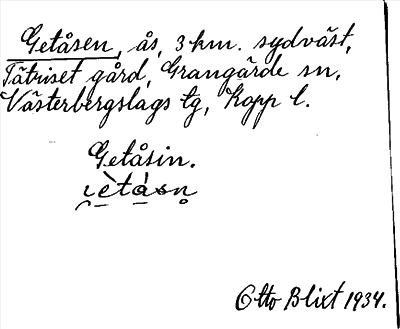 Getåsen, ås, 3 km. sydväst,
Tätriset gård, Grangärde sn,
Västerbergslags tg, Kopp l.
Getåsin.
Otto Blixt 1934.